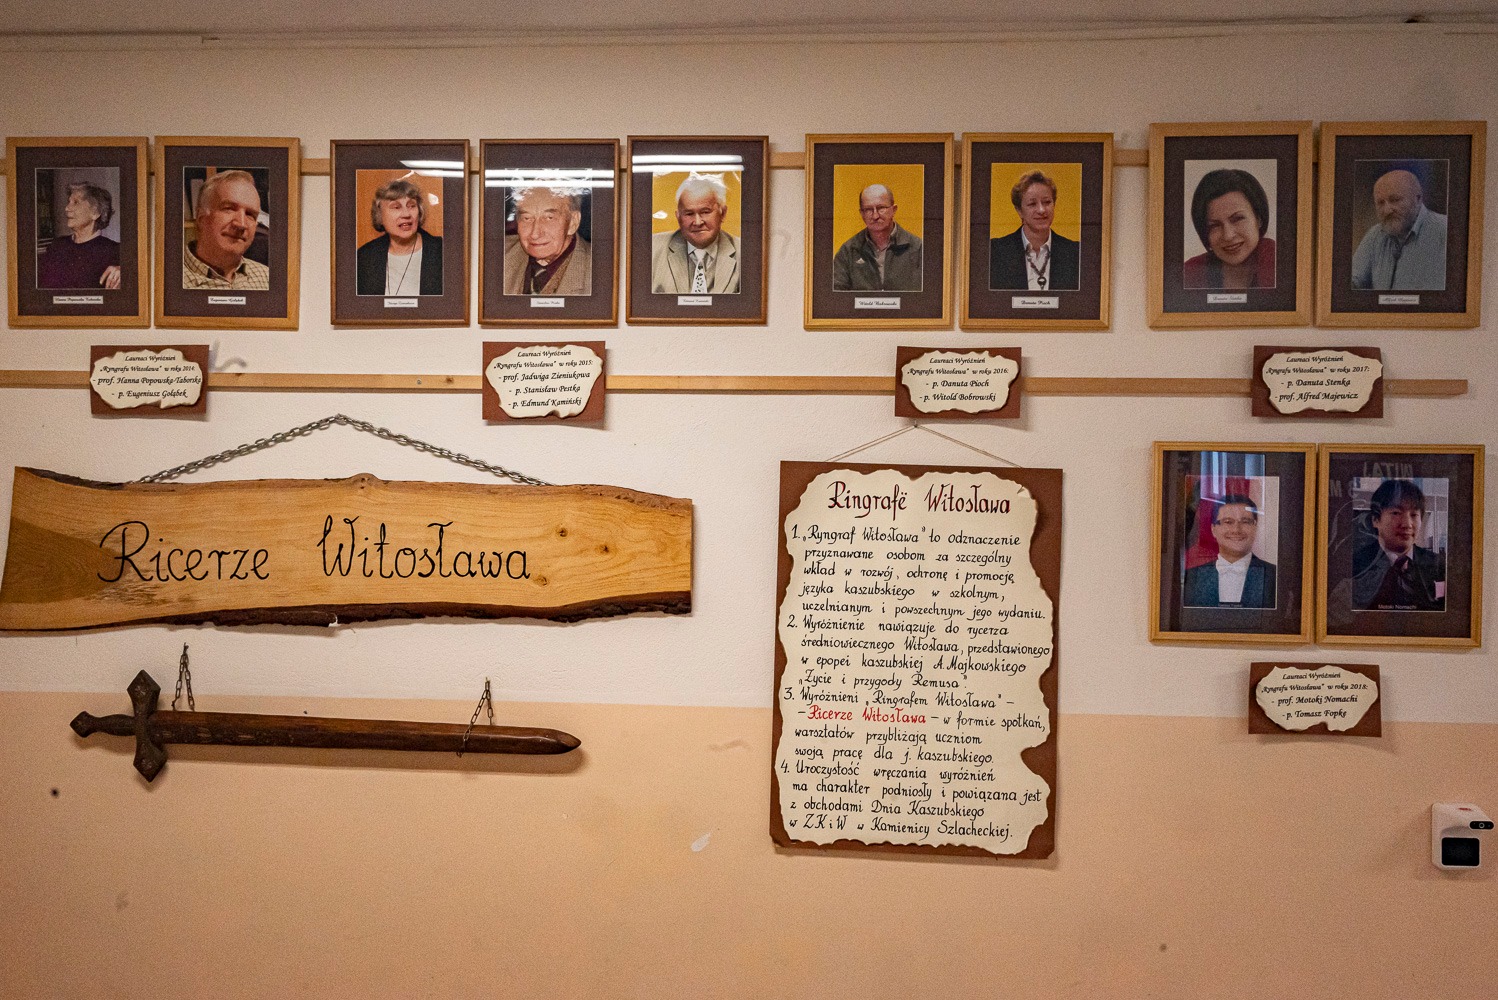 Eugeniusz Gołąbek
Witold Bobrowski
Danuta Pioch
Laureaci Wyróżnień
„Ryngrafu Witosława" w roku 2014:
- prof. Hanna Popowska-Taborska
- p. Eugeniusz Gołąbek
Laureaci Wyróżnień
„Ryngrafu Witosława" w roku 2015:
- prof. Jadwiga Zieniukowa
- p. Stanisław Pestka
- p. Edmund Kamiński
Laureaci Wyróżnień
„Ryngrafu Witosława" w roku 2016:
- p. Danuta Pioch
- p. Witold Bobrowski
Laureaci Wyróżnień
„Ryngrafu Witosława" w roku 2017:
- p. Danuta Stenka
- prof. Alfred Majewicz
Ricerze Witosława
Ringrafë Witosława
1. „Ryngraf Witosława" to odznaczenie
przyznawane osobom za szczególny
wkład w rozwój, ochronę i promocję
języka kaszubskiego w szkolnym,
uczelnianym i powszechnym jego wydaniu.
2. Wyróżnienie nawiązuje do rycerza
średniowiecznego Witosława, przedstawionego
w epopei kaszubskiej A. Majkowskiego
„Życie i przygody Remusa".
3. Wyróżnieni „Ringrafem Witosława" –
– Ricerze Witosława – w formie spotkań,
warsztatów przybliżają uczniom
swoją pracę dla j. kaszubskiego.
4. Uroczystość wręczania wyróżnień
ma charakter podniosły i powiązana jest
z obchodami Dnia Kaszubskiego
w ZKiW w Kamienicy Szlacheckiej.
Motoki Nomachi
Laureaci Wyróżnień
„Ryngrafu Witosława" w roku 2018:
- prof. Motoki Nomachi
- p. Tomasz Fopke